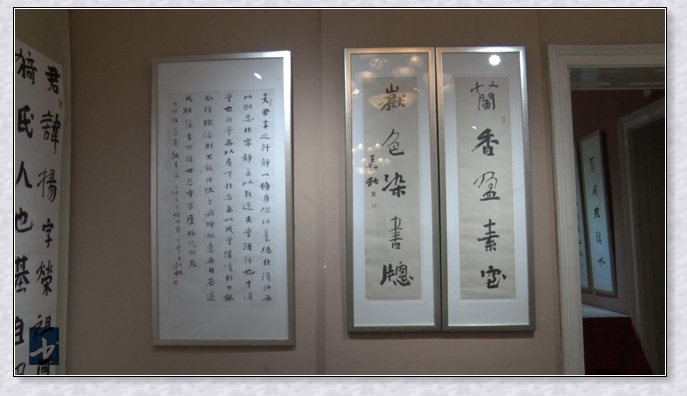 蘭香盈素室
嶽色染書牕
夫君子之行靜以脩身儉以養德非澹泊無
以明志非寧靜無以致遠夫學須靜也才須
學也非學無以廣才非志無以成學滔慢則不能
勵精險躁則不能治性年與時馳意與日去遂
成枯落多不接世悲守窮廬將復何及
君諱揚字榮祖
猗氏人也基自